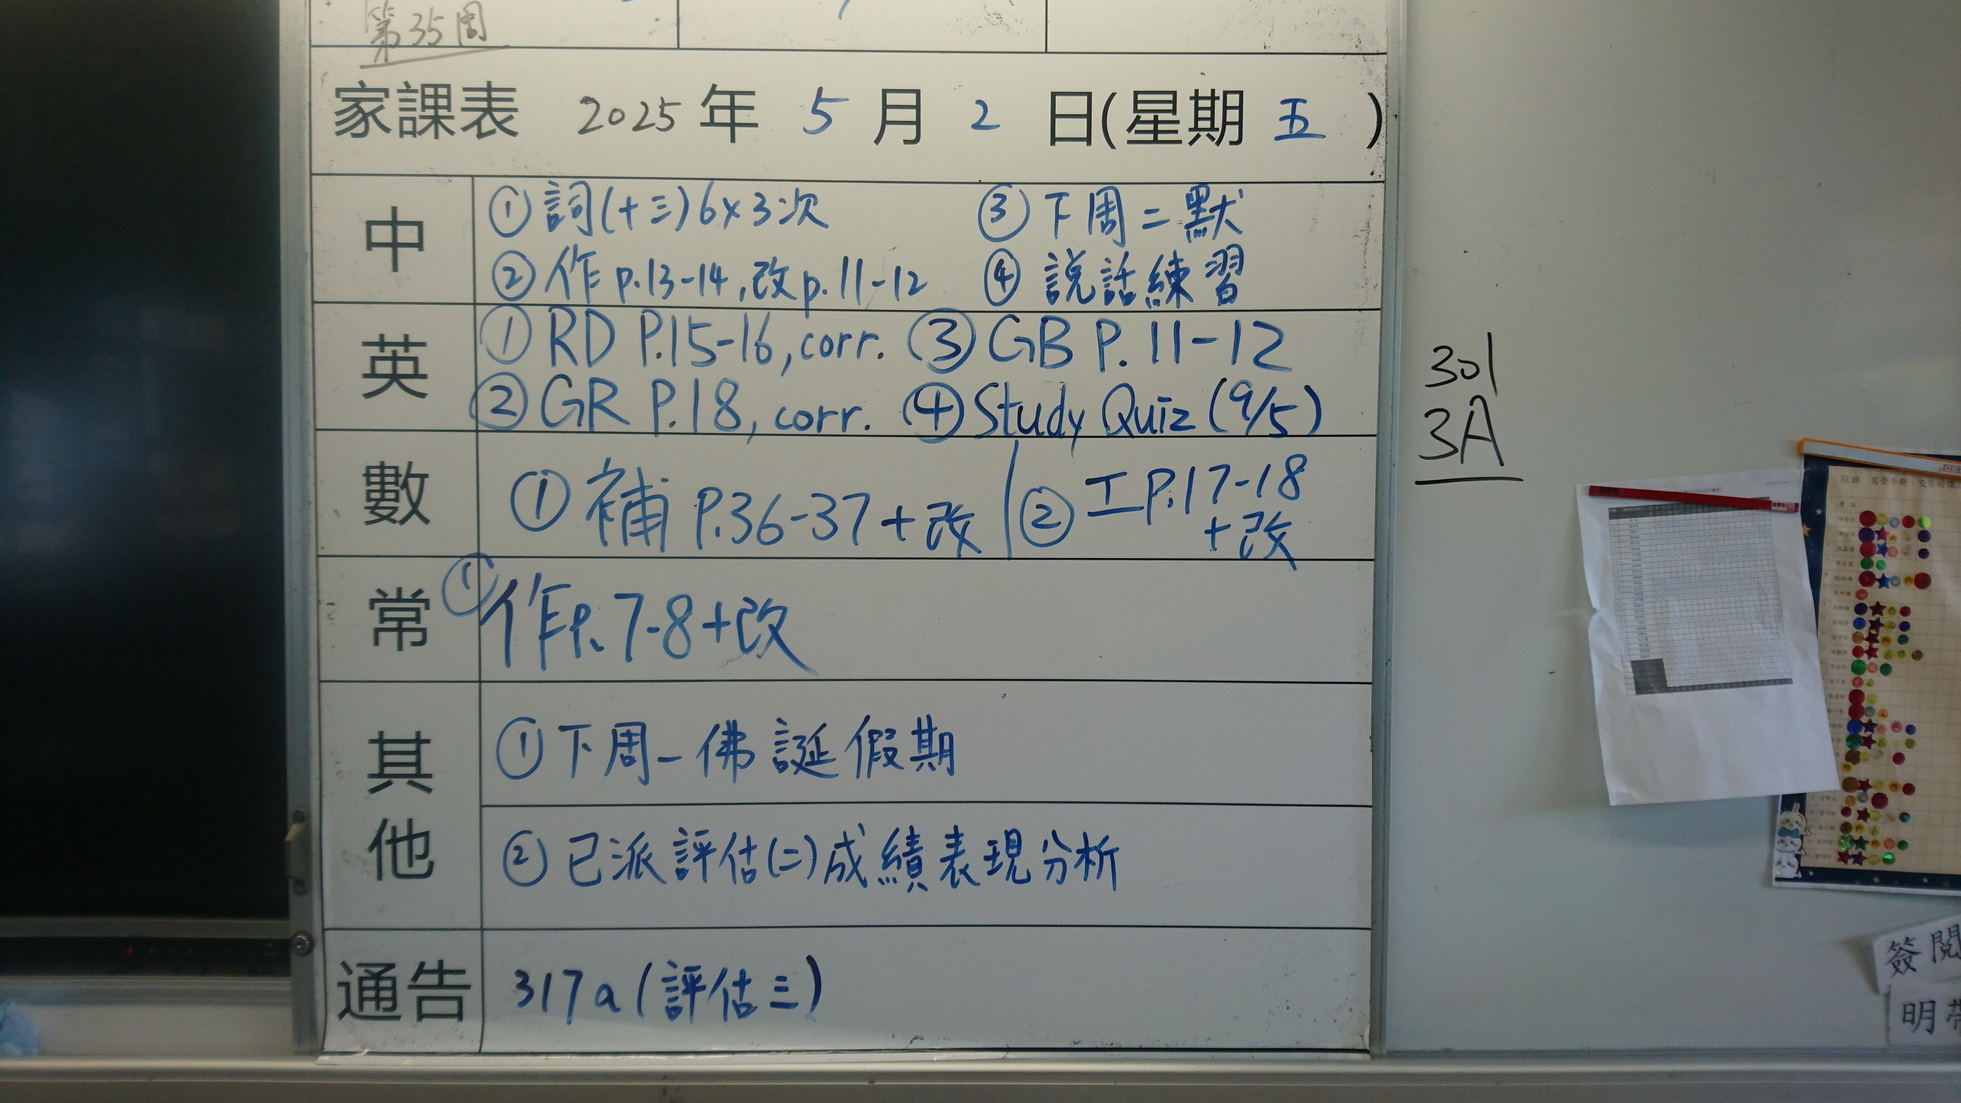 第35周
家課表 2025 年 5 月 2 日(星期 五 )
中
① 詞(十三)6x3次 ③ 下周二默
② 作 p.13-14,改p.11-12 ④ 説話練習
英
① RD P.15-16, corr. ③ GB P.11-12
② GR P.18, corr. ④ Study Quiz (9/5)
數
① 補 P.36-37+改 ② 工P.17-18
+改
常
① 作P.7-8+改
其他
① 下周一佛誕假期
② 已派評估(二)成績表現分析
通告
317a (評估三)
301
3A
簽閱
明帶